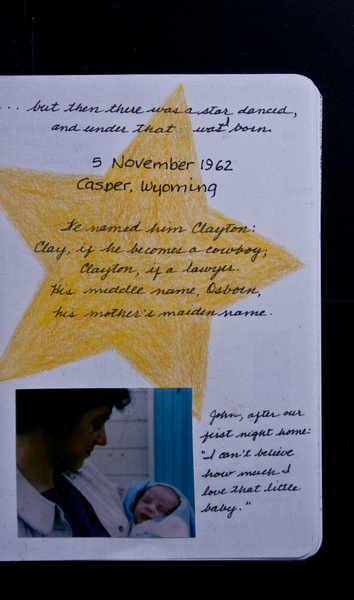 ... but then there was a star danced,
and under that was I born.
5 November 1962
Casper, Wyoming
He named him Clayton:
Clay, if he becomes a cowboy;
Clayton, if a lawyer.
His middle name, Osborn,
his mother's maiden name.
John, after our
first night home:
"I can't believe
how much I
love that little
baby."